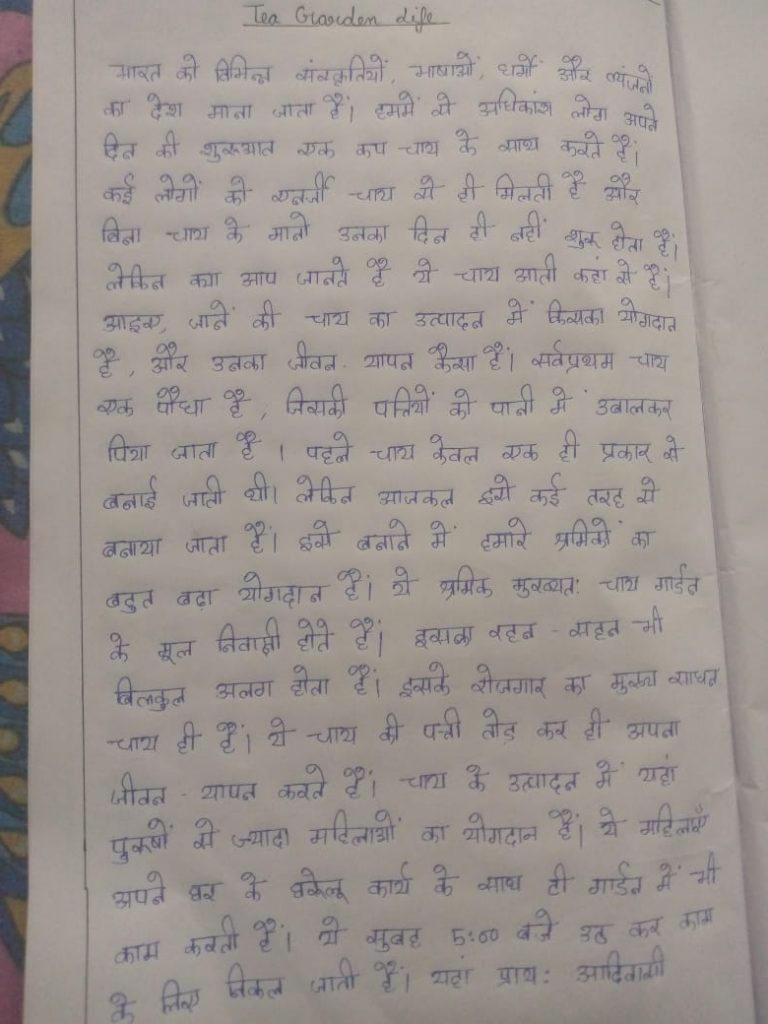 Tea Garden life
भारत को विभिन्न संस्कृतियों, भाषाओं, धर्मों और व्यंजनों
का देश माना जाता हैं। हममें से अधिकांश लोग अपने
दिन की शुरूआत एक कप चाय के साथ करते हैं।
कई लोगों को एनर्जी चाय से ही मिलती है और
बिना चाय के मानो उनका दिन ही नहीं शुरू होता हैं।
लेकिन क्या आप जानते है ये चाय आती कहां से हैं।
आइए, जानें की चाय का उत्पादन में किसका योगदान
है, और उनका जीवन-यापन कैसा हैं। सर्वप्रथम चाय
एक पौधा है, जिसकी पत्तियों को पानी में उबालकर
पिया जाता है। पहले चाय केवल एक ही प्रकार से
बनाई जाती थी। लेकिन आजकल इसे कई तरह से
बनाया जाता हैं। इसे बनाने में हमारे श्रमिकों का
बहुत बढ़ा योगदान हैं। ये श्रमिक मुख्यतः चाय गार्डन
के मूल निवासी होते हैं। इसका रहन-सहन भी
बिलकुल अलग होता हैं। इसके रोजगार का मुख्य साधन
चाय ही हैं। ये चाय की पत्ती तोड़ कर ही अपना
जीवन-यापन करते हैं। चाय के उत्पादन में यहां
पुरूषों से ज्यादा महिलाओं का योगदान हैं। ये महिलाएँ
अपने घर के घरेलू कार्य के साथ ही गार्डन में भी
काम करती हैं। ये सुबह 5:00 बजे उठ कर काम
के लिए निकल जाती हैं। यहां प्रायः आदिवासी